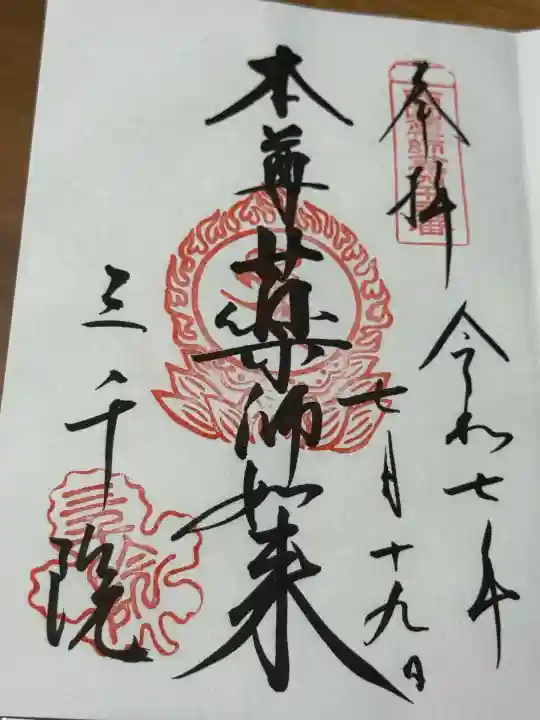 奉拝
令和七年
七月十九日
本尊薬師如来
三千院